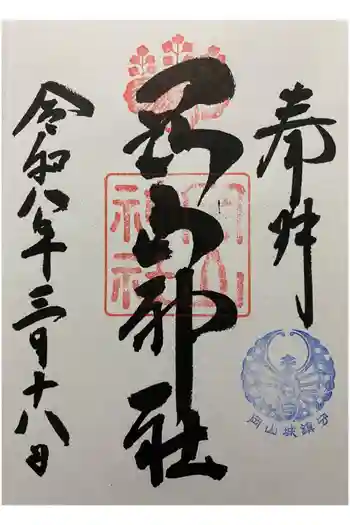 奉拝
岡山神社
岡山神社
令和八年三月十八日
岡山城鎮守